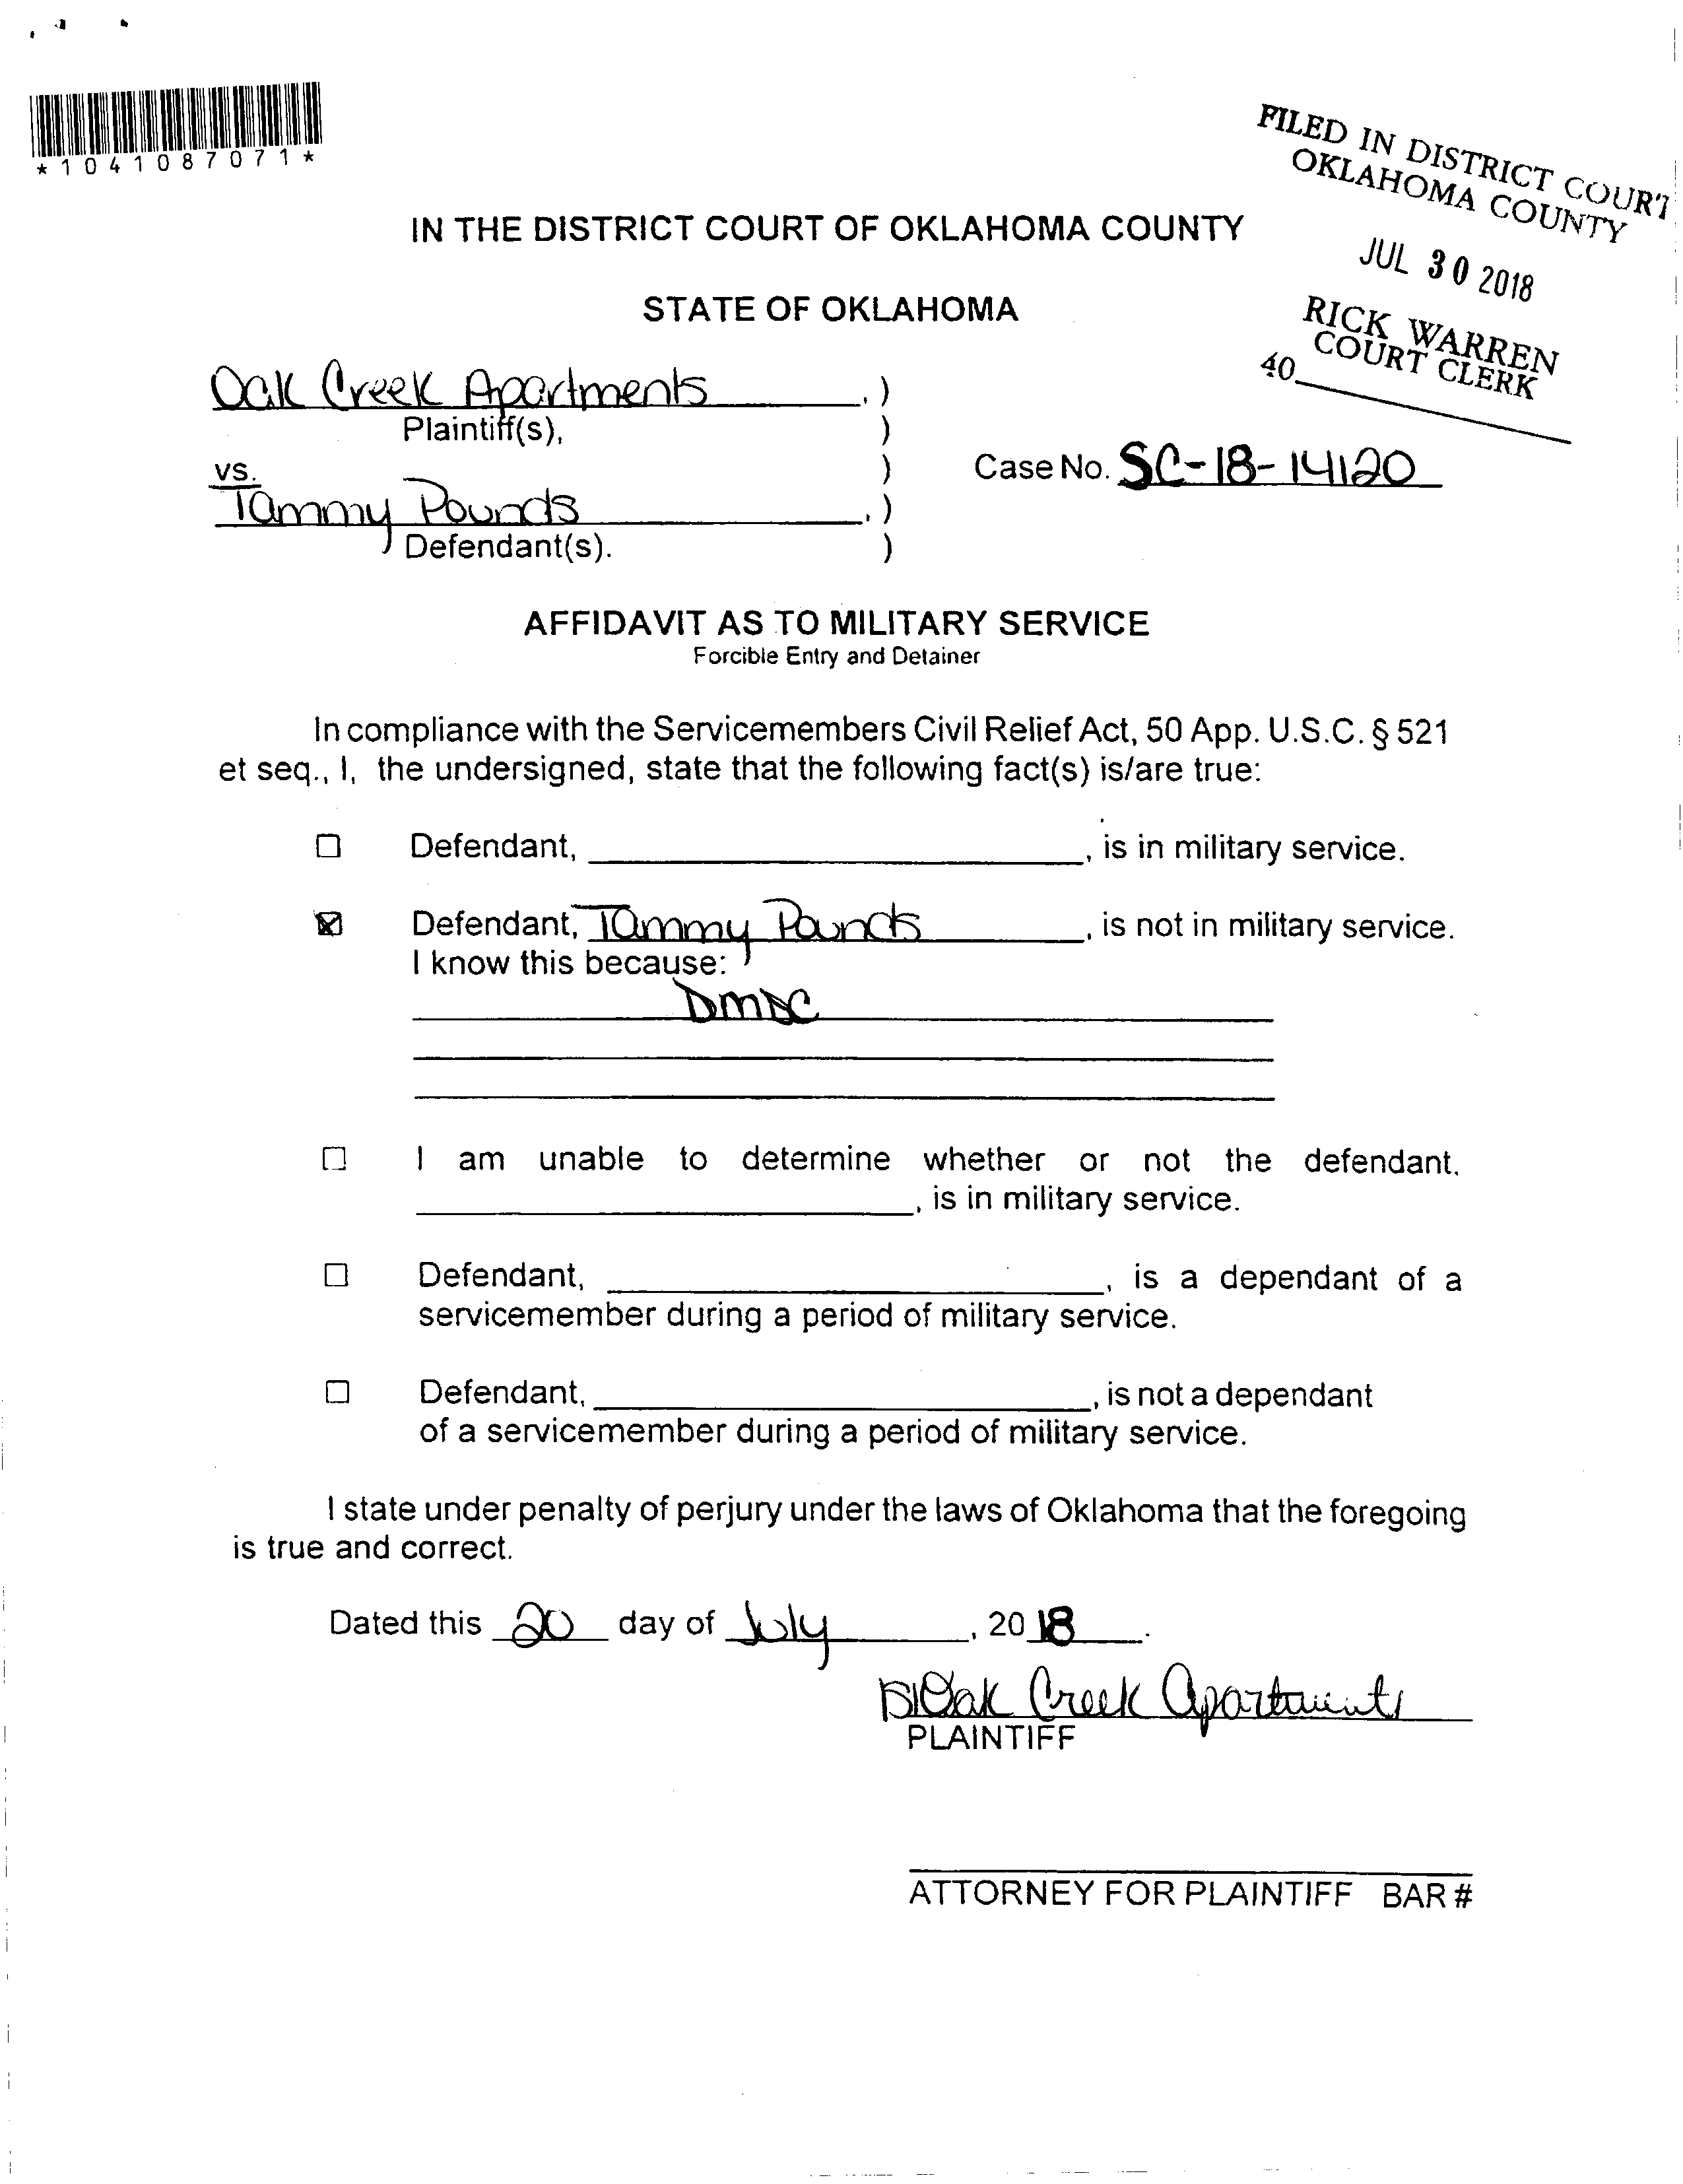 *1041087071*
FILED IN DISTRICT COURT
OKLAHOMA COUNTY
JUL 30 2018
RICK WARREN
COURT CLERK
40
IN THE DISTRICT COURT OF OKLAHOMA COUNTY
STATE OF OKLAHOMA
Oak Creek Apartments, )
Plaintiff(s), )
vs. )
Case No. SC-18-14120
Tammy Pounds, )
Defendant(s). )
AFFIDAVIT AS TO MILITARY SERVICE
Forcible Entry and Detainer
In compliance with the Servicemembers Civil Relief Act, 50 App. U.S.C. § 521
et seq., I, the undersigned, state that the following fact(s) is/are true:
☐ Defendant, , is in military service.
☒ Defendant, Tammy Pounds, is not in military service.
I know this because:
DMDC
☐ I am unable to determine whether or not the defendant,
, is in military service.
☐ Defendant, , is a dependant of a
servicemember during a period of military service.
☐ Defendant, , is not a dependant
of a servicemember during a period of military service.
I state under penalty of perjury under the laws of Oklahoma that the foregoing
is true and correct.
Dated this 20 day of July, 2018.
Oak Creek Apartments
PLAINTIFF
ATTORNEY FOR PLAINTIFF BAR #